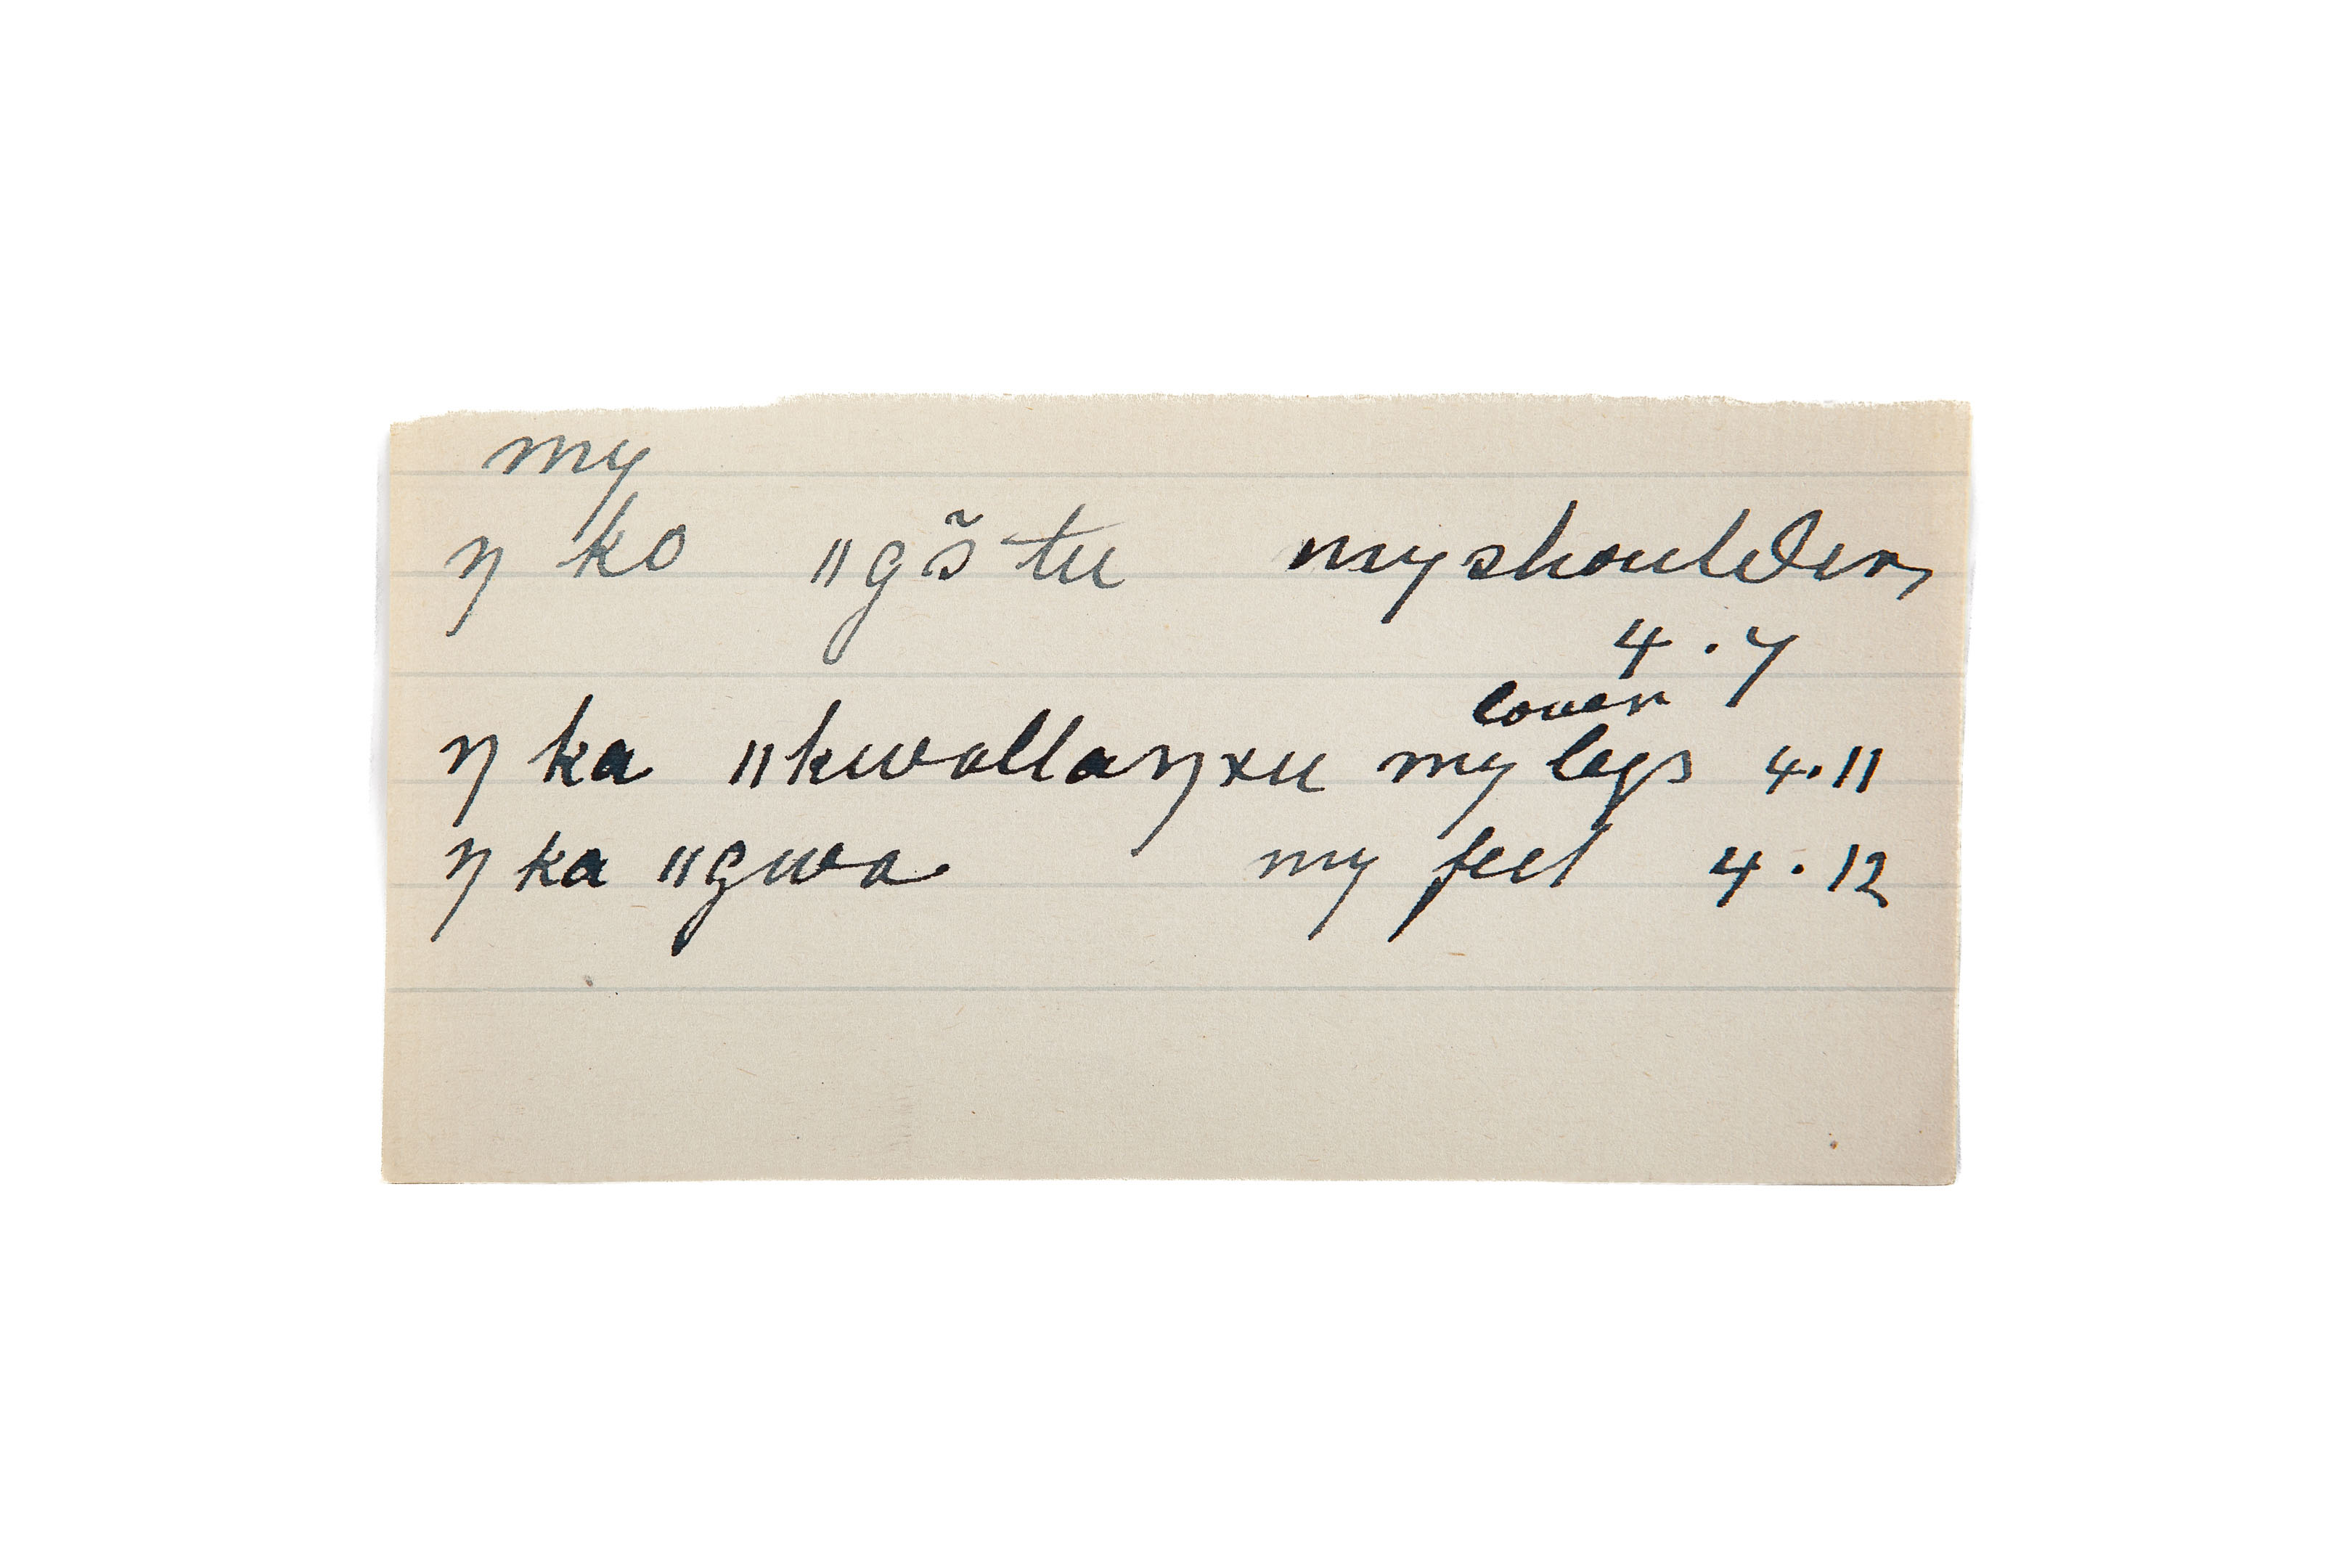 my
ŋ ko ǁgõ tu my shoulder,
4.7
lower
ŋ ka ǁkwallaŋxu my legs 4.11
ŋ ka ǁgwa. my feet 4.12